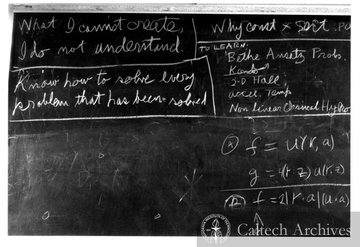 What I cannot create,
I do not understand.
Know how to solve every
problem that has been solved
Why const × sort
TO LEARN:
Bethe Ansatz Probs.
Kondo
2-D Hall
accel. Temp
Non Linear Classical Hydro
f = u(r, a)
g = u(r·z)
f = 2|r·a|(u·a)
Caltech Archives